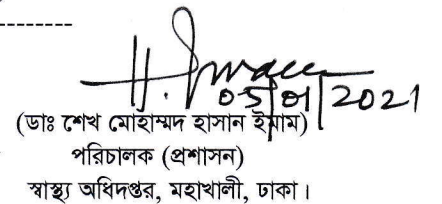 H. Imam
05/01/2021
(ডাঃ শেখ মোহাম্মদ হাসান ইমাম)
পরিচালক (প্রশাসন)
স্বাস্থ্য অধিদপ্তর, মহাখালী, ঢাকা।